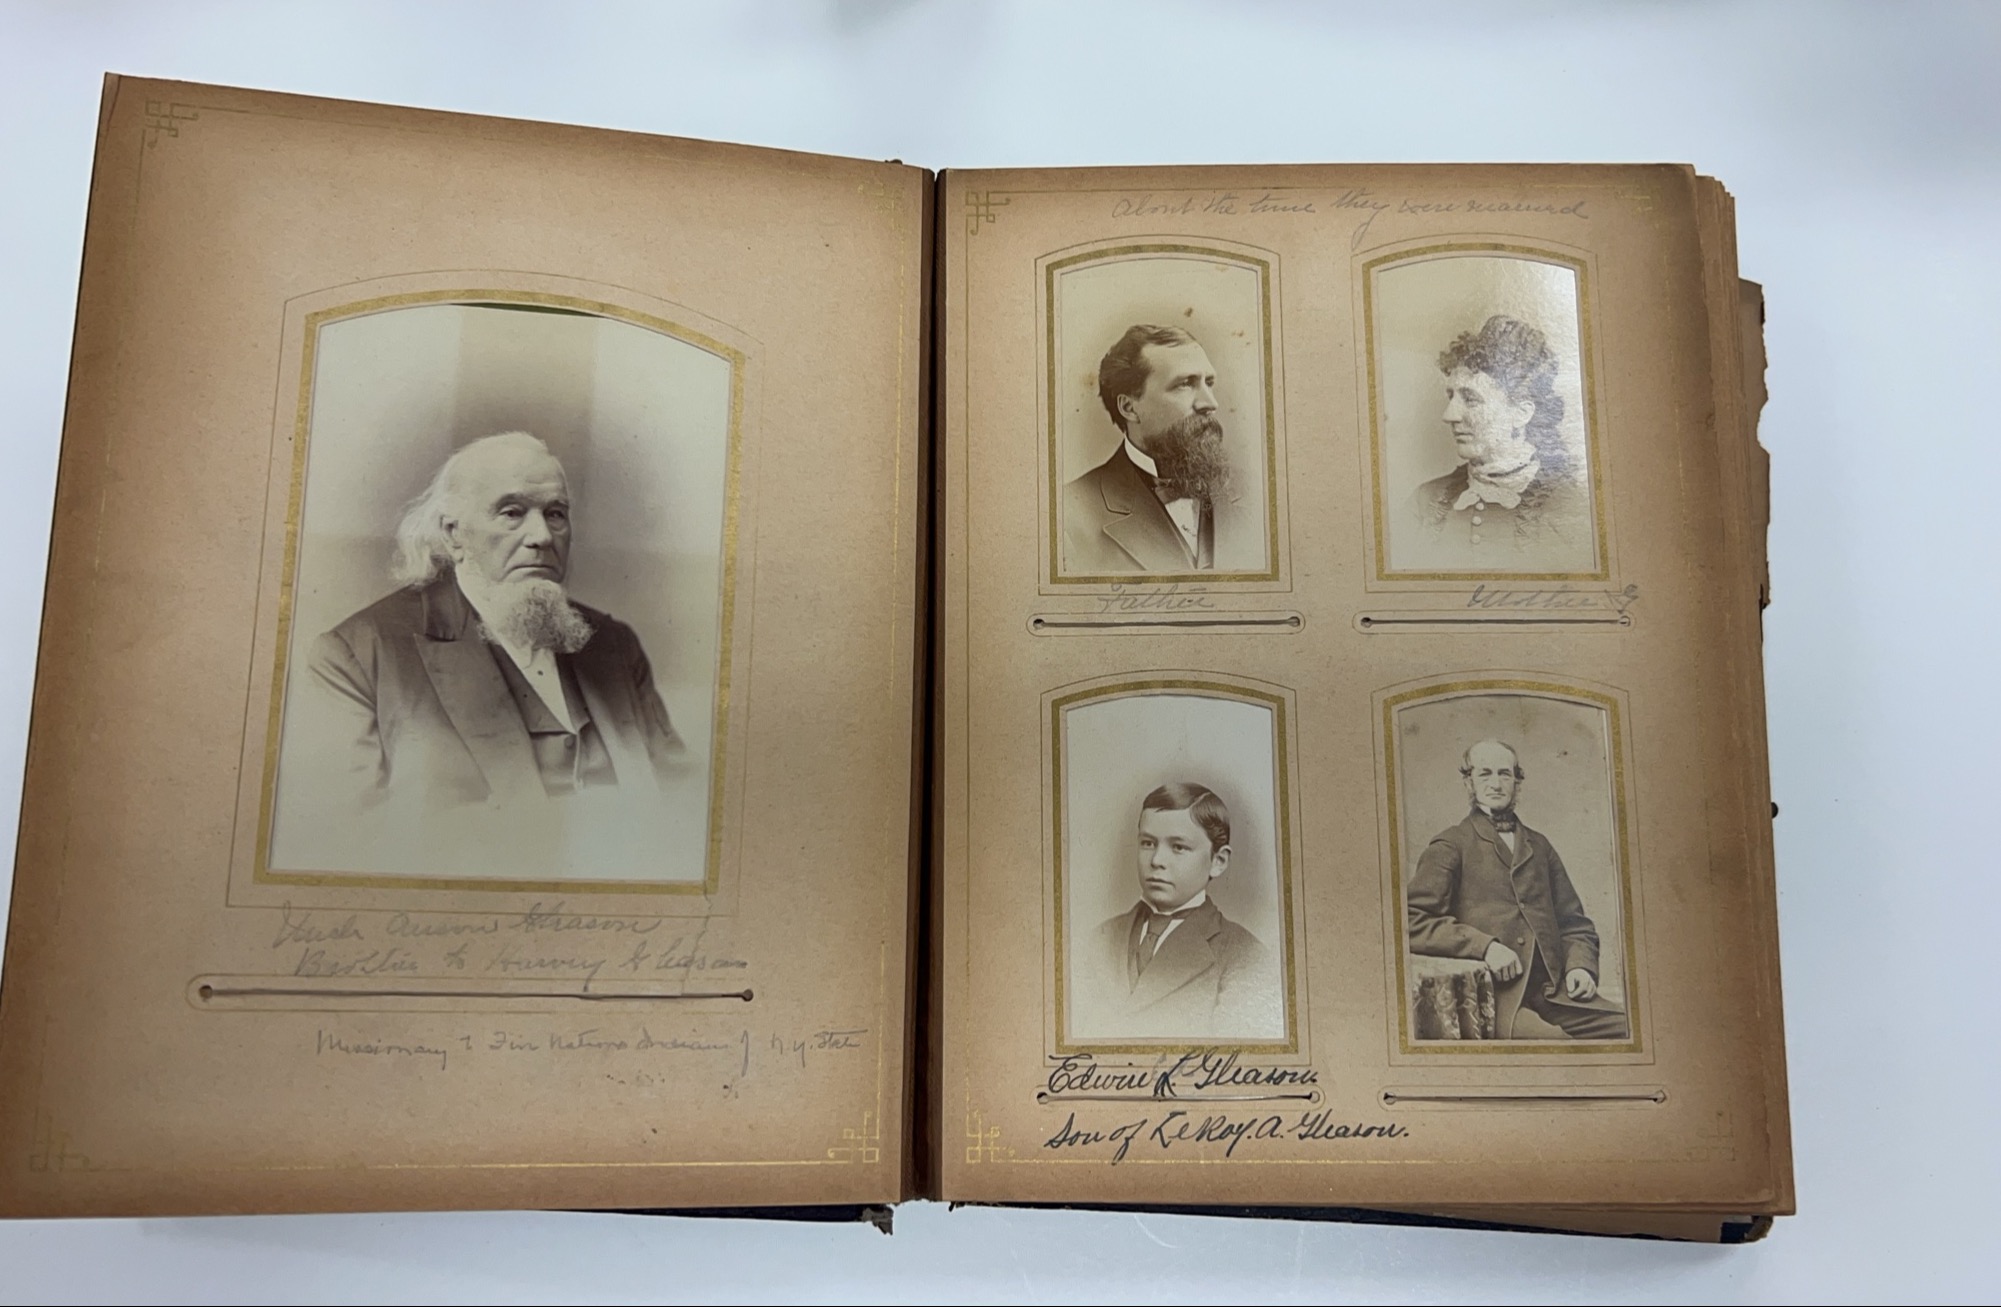 Uncle Anson Gleason
Brother to Harvey Gleason
Missionary to Five Nations Indians of N.Y. State
About the time they were married
Father
Mother G
Edwin L. Gleason.
Son of LeRoy. A. Gleason.